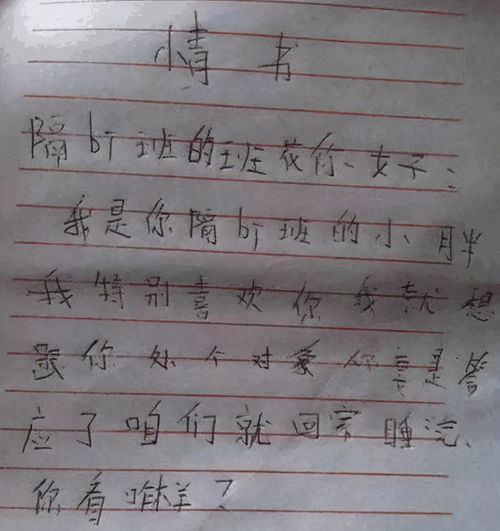 情书
隔bi班的班花你、女子:
我是你隔bi班的小月半
我特别喜欢你我就想
跟你处个对象你要是答
应了咱们就回家睡觉、
你看咋样?